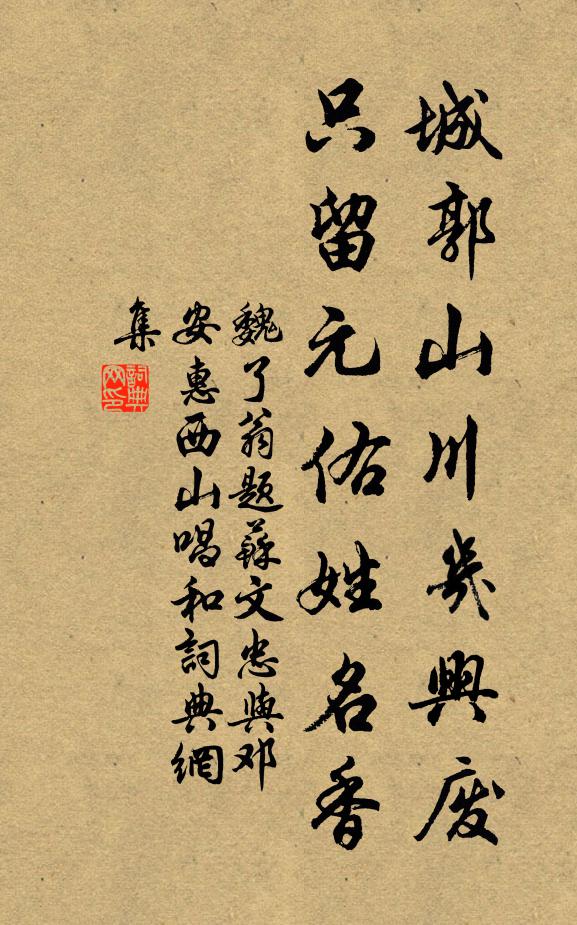 城郭山川幾興废
只留元佑姓名香
魏了翁题蘇文忠與邓
安惠西山唱和詞典網
集
詞典
网印